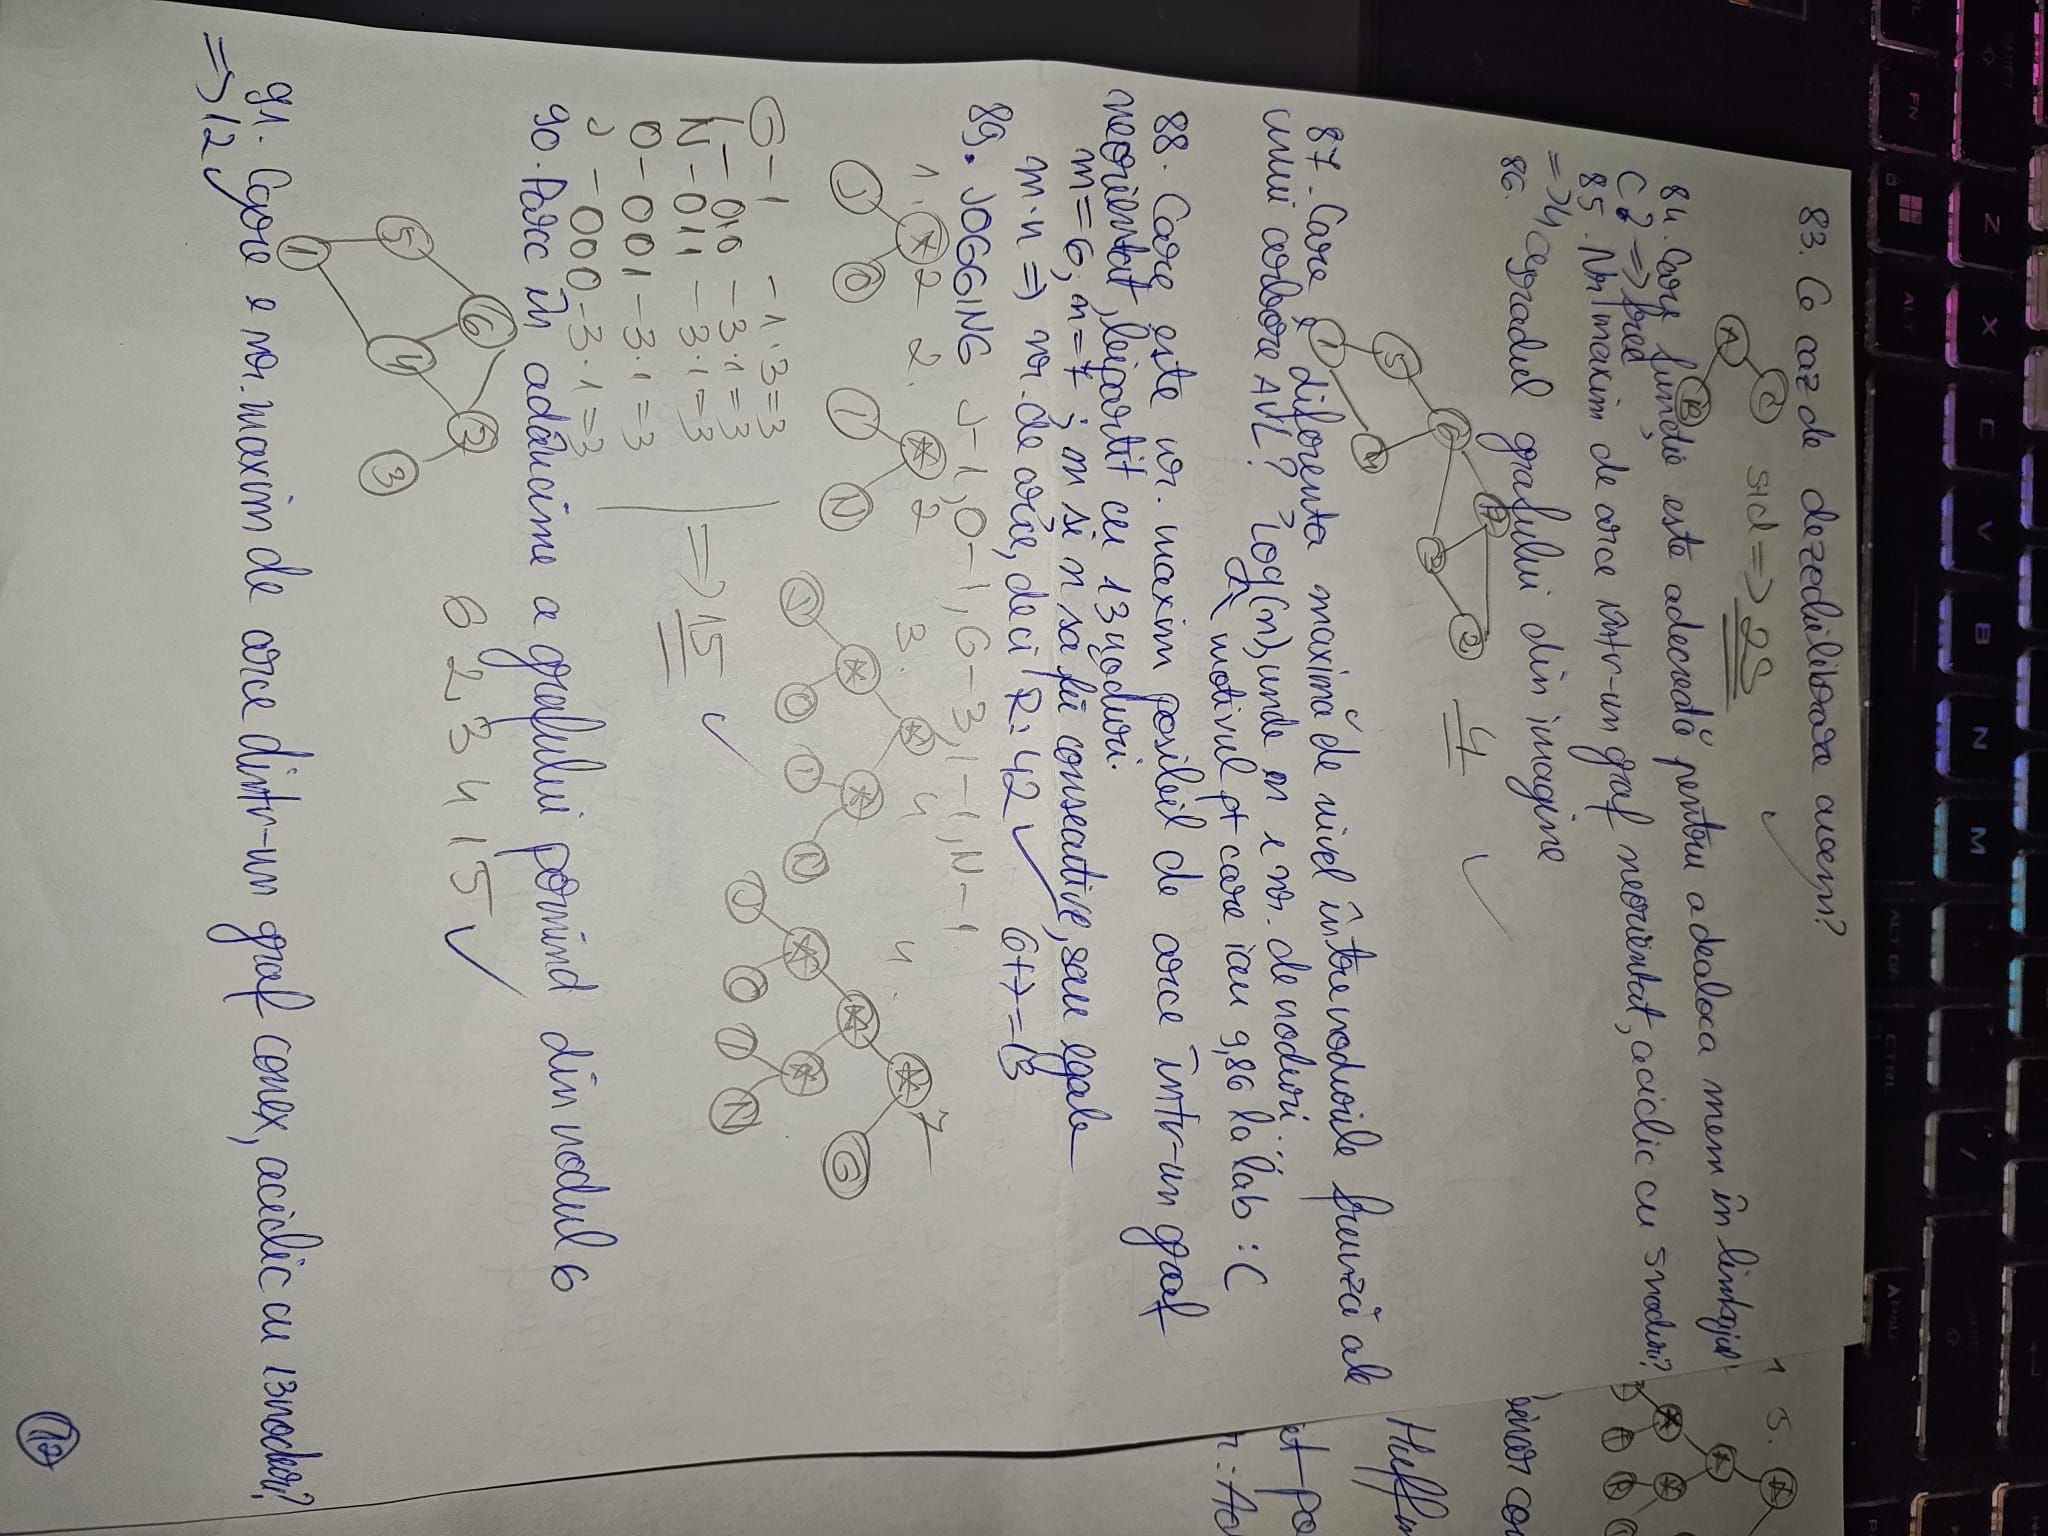 83. Ce caz de dezechilibrare avem?
A
C
B
SId => 2S
84. Care funcție este adecvată pentru a dealoca mem în limbajul
C? => free
85. Nr maxim de arce într-un graf neorientat, aciclic cu 5 noduri?
=> 4
86. gradul grafului din imagine
1 5 6 4 2 4
87. Care e diferența maximă de nivel între nodurile frunză ale
unui arbore AVL? log(n), unde n e nr. de noduri.
2 motivul pt care iau 9,86 la lab :(
88. Care este nr. maxim posibil de arce într-un graf
neorientat, bipartit cu 13 noduri.
m=6, n=7; m și n să fie consecutive, sau egale
m·n => nr. de arce, deci R: 42 6+7=13
89. JOGGING J-1, O-1, G-3, I-1, N-1.
1. * 2
J O
2. * 2
I N
3. * 4
* *
J O I N
4. * 7
* G
* *
J O I N
G - 1 - 1·3=3
I - 010 - 3·1=3
N - 011 - 3·1=3
O - 001 - 3·1=3
J - 000 - 3·1=3
=> 15
90. Parc în adâncime a grafului pornind din nodul 6
1 5 6 4 2 3
6 2 3 4 1 5
91. Care e nr. maxim de arce dintr-un graf conex, aciclic cu 13 noduri?
=> 12
12
3.
Huffm